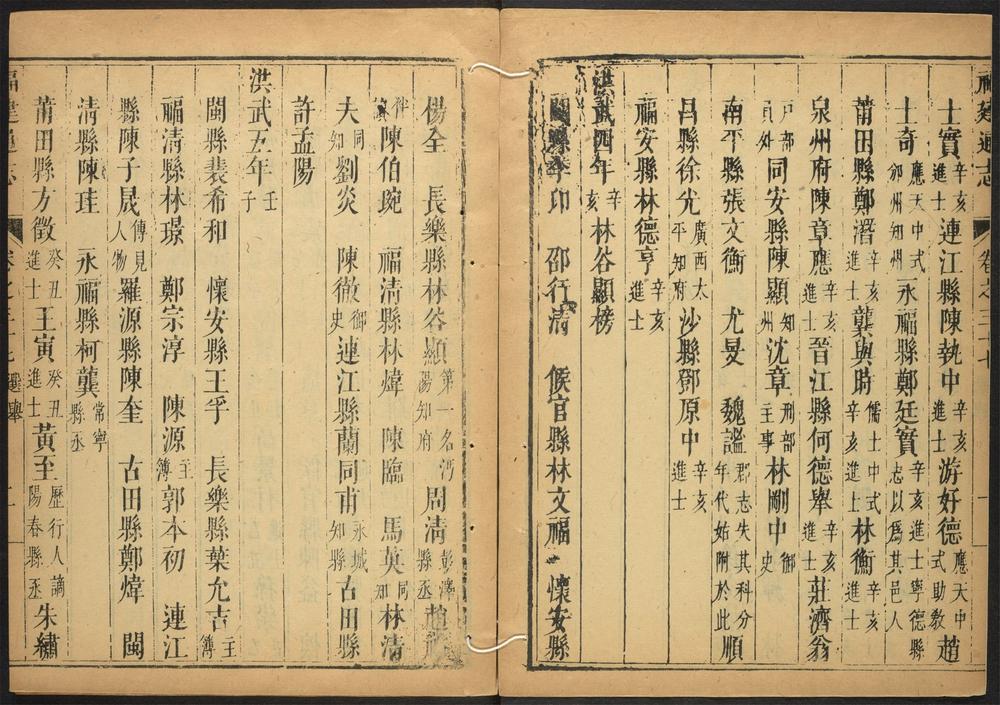 福建通志 卷之三十七
士實辛亥進士連江縣陳執中辛亥進士游好德應天中式助教趙
士奇應天中式邠州知州永福縣鄭廷實辛亥進士寧德縣志以爲其邑人
莆田縣鄭潛辛亥進士龔與時儒士中式辛亥進士林衡辛亥進士
泉州府陳章應辛亥進士晉江縣何德舉辛亥進士莊濟翁
戶部員外同安縣陳顯知州沈章刑部主事林剛中御史
南平縣張文衡 尤旻 魏謐郡志失其科分年代始附於此順
昌縣徐光廣西太平知府沙縣鄧原中辛亥進士
福安縣林德亨辛亥進士
洪武四年辛亥林谷顯榜
閩縣李卬 邵行清 候官縣林文福 懷安縣
楊全 長樂縣林谷顯第一名沔陽知府周清彭澤縣丞趙
伴陳伯琬 福清縣林煒 陳臨 馬英同知林清
夫同知劉炎 陳徹御史連江縣蘭同甫永城知縣古田縣
許孟陽
洪武五年壬子
閩縣裴希和 懷安縣王孚 長樂縣葉允吉主簿
福清縣林璟 鄭宗淳 陳源主簿郭本初 連江
縣陳子晟傳見人物羅源縣陳奎 古田縣鄭煒 閩
清縣陳珪 永福縣柯龔常寧縣丞
莆田縣方徵癸丑進士王寅癸丑進士黃至歷行人謫陽春縣丞朱繡
福建通志 卷之三十七 選舉